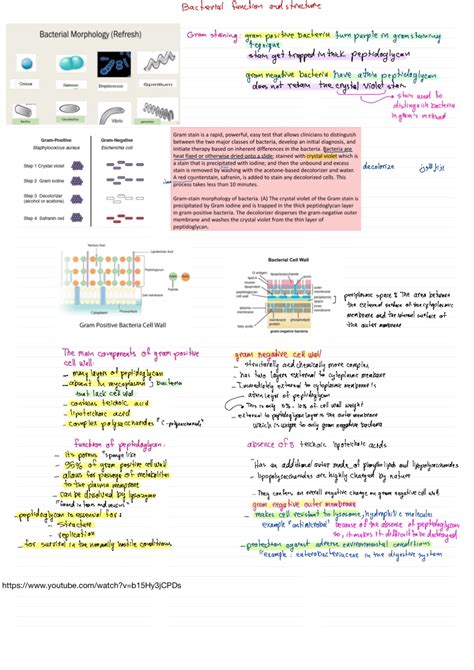 Bacterial function and structure
Bacterial Morphology (Refresh)
Gram staining: gram positive bacteria turn purple in gram staining
stain get trapped in thick peptidoglycan
gram negative bacteria have a thin peptidoglycan
does not retain the crystal violet stain
stain used to
distinguish bacteria
in gram's method
Gram-Positive
Staphylococcus aureus
Gram-Negative
Escherichia coli
Step 1 Crystal violet
Step 2 Gram iodine
Step 3 Decolorizer
(alcohol or acetone)
Step 4 Safranin red
Gram stain is a rapid, powerful, easy test that allows clinicians to distinguish
between the two major classes of bacteria, develop an initial diagnosis, and
initiate therapy based on inherent differences in the bacteria. Bacteria are
heat fixed or otherwise dried onto a slide; stained with crystal violet which is
a stain that is precipitated with iodine; and then the unbound and excess
stain is removed by washing with the acetone-based decolorizer and water.
A red counterstain, safranin, is added to stain any decolorized cells. This
process takes less than 10 minutes.
Gram-stain morphology of bacteria. (A) The crystal violet of the Gram stain is
precipitated by Gram iodine and is trapped in the thick peptidoglycan layer
in gram-positive bacteria. The decolorizer disperses the gram-negative outer
membrane and washes the crystal violet from the thin layer of
peptidoglycan.
decolorize
Gram Positive Bacteria Cell Wall
Bacterial Cell Wall
periplasmic space: The area between
the external surface of the cytoplasmic
membrane and the internal surface of
the outer membrane
The main components of gram positive
cell wall:
- many layers of peptidoglycan
- absent in mycoplasma } bacteria
that lack cell wall
- contains teichoic acid
- lipoteichoic acid
- complex polysaccharides "C-polysaccharides"
gram negative cell wall
- structurally and chemically more complex
- has two layers external to cytoplasmic membrane
- Immediately external to cytoplasmic membrane is
a thin layer of peptidoglycan
This is only 5% - 10% of cell wall weight
- external to peptidoglycan layer is the outer membrane
which is unique to only gram negative bacteria
function of peptidoglycan:
- its porous "sponge like"
- 95% of gram positive cell wall
- allows for passage of metabolites
to the plasma membrane
- can be dissolved by lysozyme
"found in tears and mucus"
- peptidoglycan is essential for:
- structure
- replication
- for survival in the normally hostile conditions
absence of: teichoic, lipoteichoic acids
- Has an additional outer made of phospholipids and lipopolysaccharides
- lipopolysaccharides are highly charged by nature
- They confers an overall negative charge on gram negative cell wall
gram negative outer membrane
- makes cell resistant to lysosome, hydrophilic molecules
example "antimicrobial" because of the absence of peptidoglycan
so, it makes it difficult to be destroyed
- protection against adverse environmental conditions
"example: enterobacteriaceae in the digestive system
https://www.youtube.com/watch?v=b15Hy3jCPDs